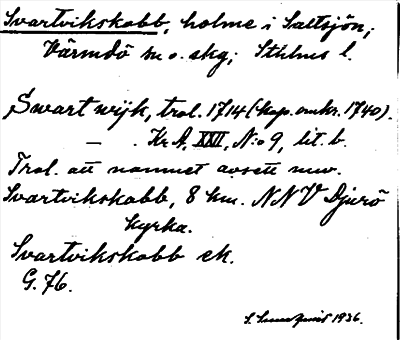 Svartvikskobb, holme i Saltsjön,
Värmdö sn o. skg; Sthlms l.
Swart wijk, trol. 1714 (kop. omkr. 1740).
— . Kr. A, XXII, N:o 9, lit. b.
Trol. att namnet avsett nuv.
Svartvikskobb, 8 km. NNV Djurö
kyrka.
Svartvikskobb ek.
G. 76.
S. 1936.